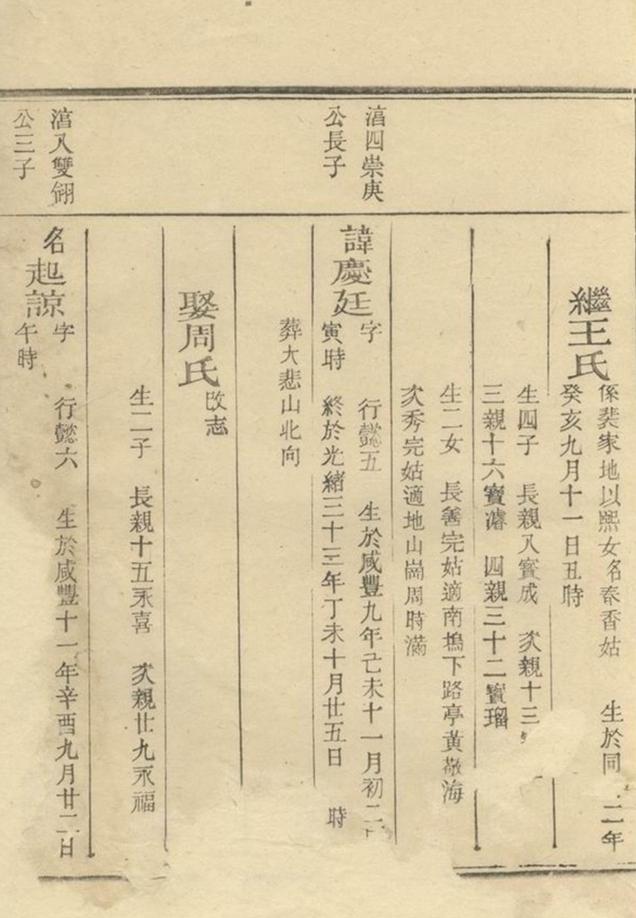 繼王氏
係裴家地以熙女名春香姑 生於同 二年
癸亥九月十一日丑時
生四子 長親八寳成 次親十三
三親十六寳濬 四親三十二寳瑠
生二女 長善完姑適南塢下路亭黃敬海
次秀完姑適地山崗周時滿
濸四崇庚
公長子
諱慶廷
字 行懿五 生於咸豐九年己未十一月初二
寅時 終於光緒三十三年丁未十月廿五日 時
葬大悲山北向
娶周氏
改志
生二子 長親十五永喜 次親廿九永福
八雙
公三子
名起諒
字 行懿六 生於咸豐十一年辛酉九月廿二日
午時